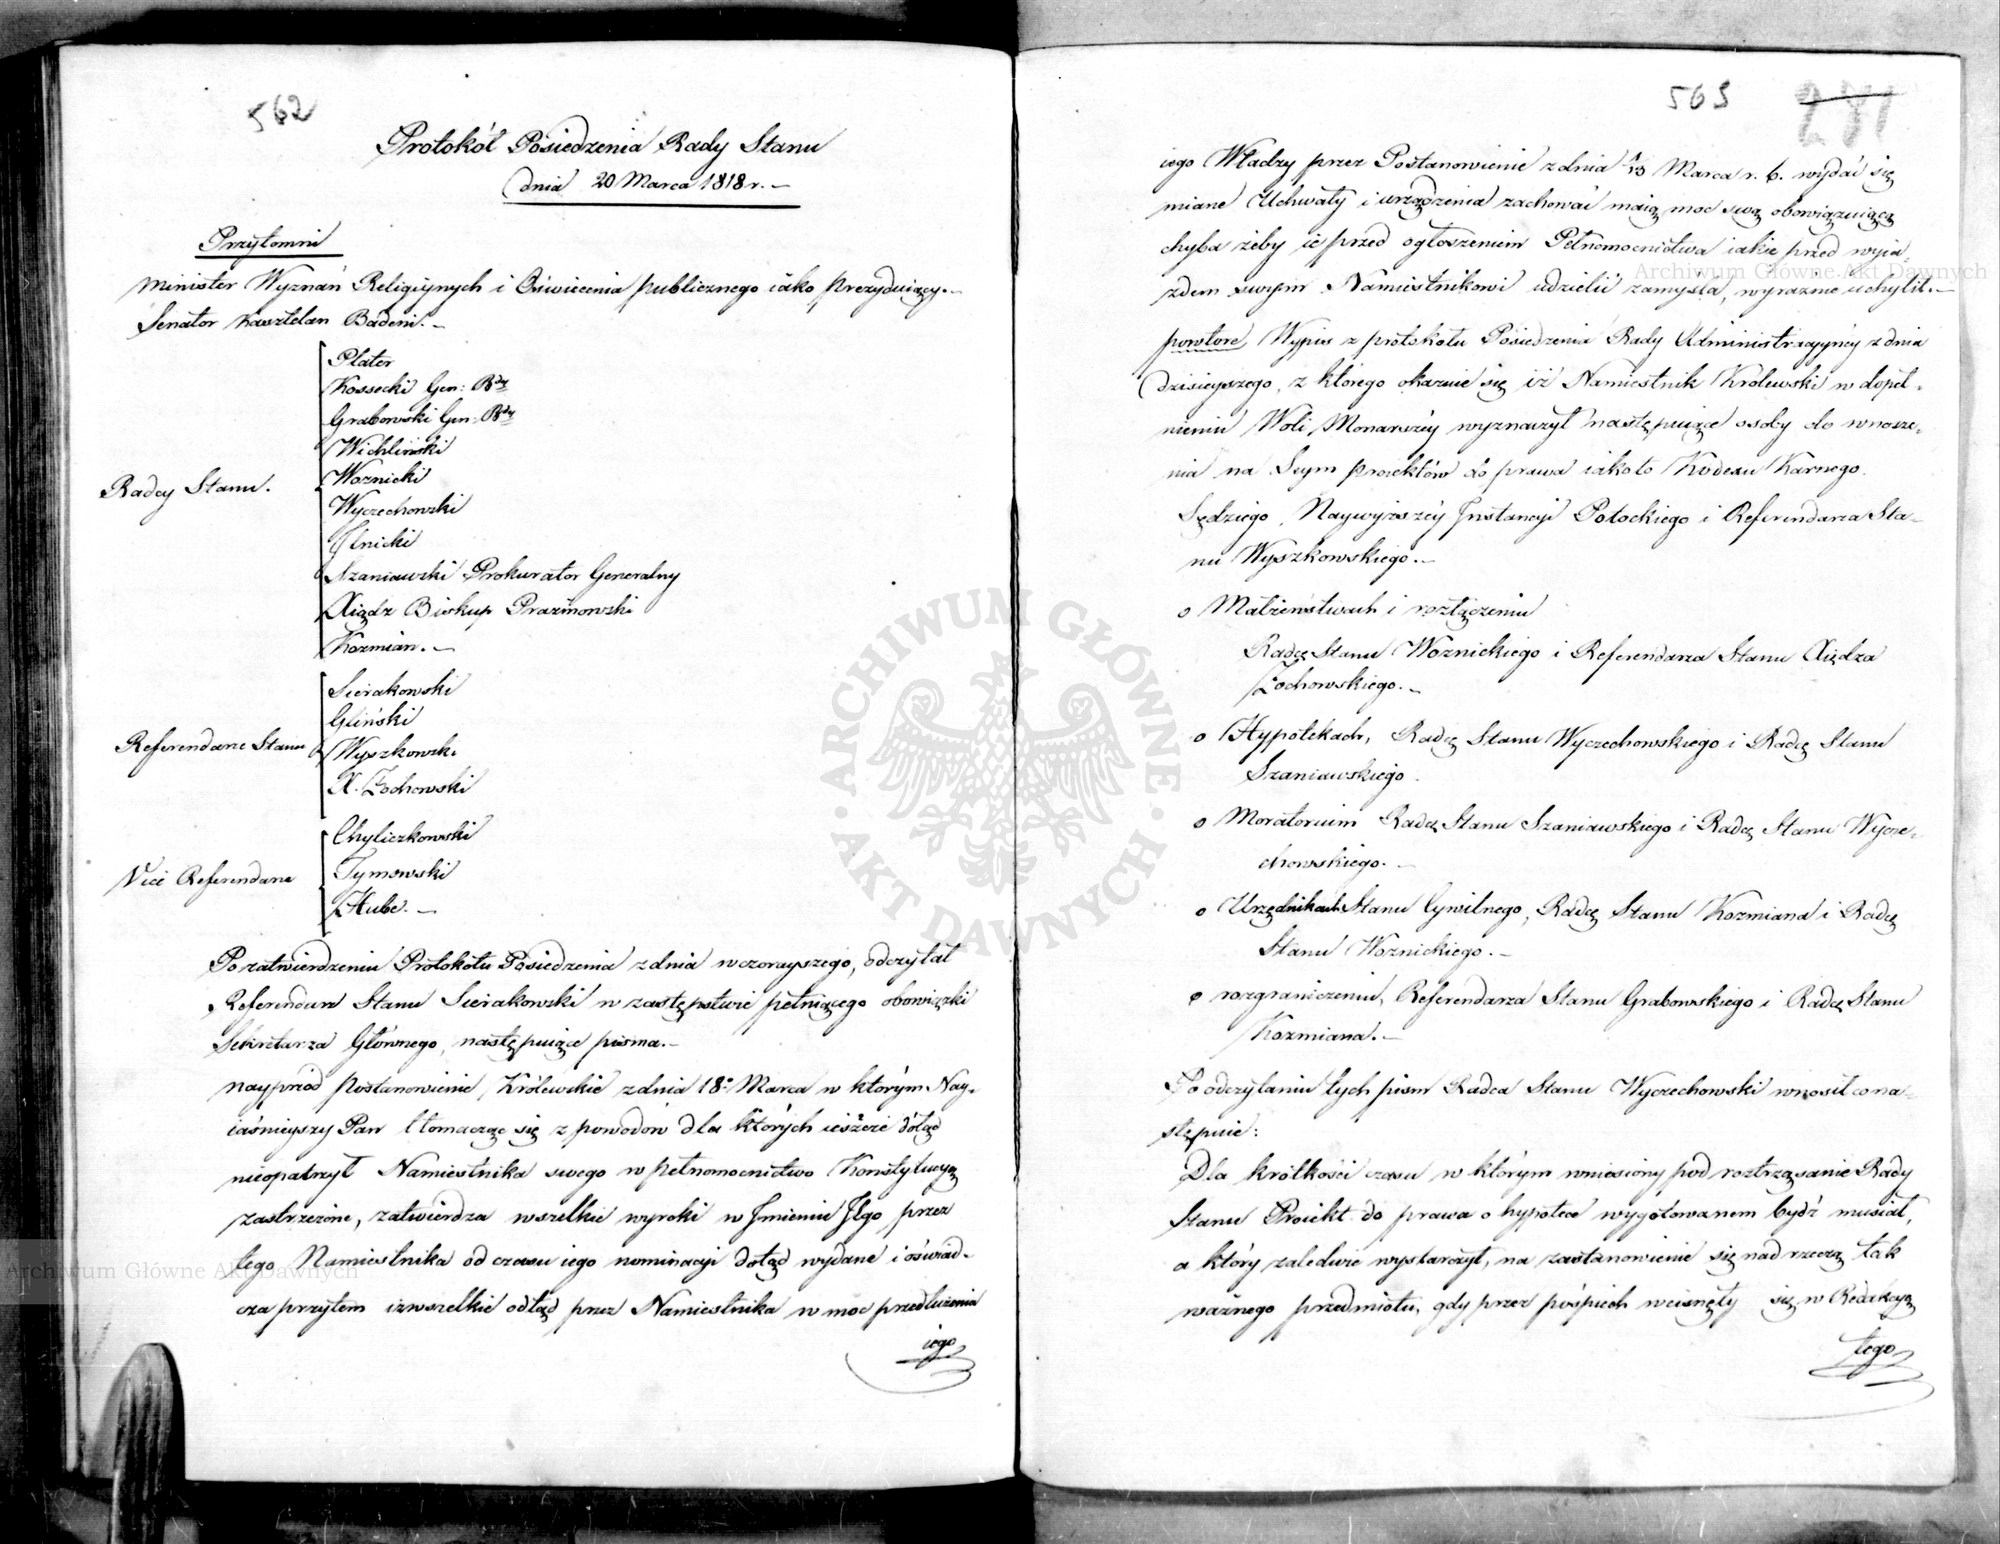 562
Protokół Posiedzenia Rady Stanu
dnia 20 Marca 1818 r. –
Przytomni
Minister Wyznań Religiynych i Oświecenia publicznego iako prezyduiący. –
Senator Kasztelan Badeni. –
Radcy Stanu.
Plater
Kossecki Gen: Bdy
Grabowski Gen: Bdy
Wichliński
Woznicki
Wyczechowski
Ilnicki
Szaniawski Prokurator Generalny
Xiądz Biskup Prażmowski
Kozmian. –
Referendarze Stanu
Sierakowski
Gliński
Wyszkowski
X. Żochowski
Vice Referendarze
Chyliczkowski
Tymowski
Hube. –
Po zatwierdzeniu Protokółu Posiedzenia z dnia wczorayszego, odczytał
Referendarz Stanu Sierakowski w zastępstwie pełniącego obowiązki
Sekretarza Głównego, następuiące pisma. –
nayprzód Postanowienie Królewskie z dnia 18o Marca w którym Nay-
iaśnieyszy Pan tłomacząc się z powodów dla których ieszcze dotąd
nieopatrzył Namiestnika swego w pełnomocnictwo Konstytucyą
zastrzeżone, zatwierdza wszelkie wyroki w Imieniu Jego przez
tego Namiestnika od czasu iego nominacyi dotąd wydane i oświad-
cza przytem iż wszelkie odtąd przez Namiestnika w moc przedłużenia
iego
563
281
iego Władzy przez Postanowienie z dnia 1/13 Marca r. b. wydać się
miane Uchwały i urządzenia zachować maią moc swą obowiązuiącą
chyba żeby ie przed ogłoszeniem Pełnomocnictwa iakie przed wyia-
zdem swym Namiestnikowi udzielić zamyśla, wyraźnie uchylił. –
powtore Wypis z protokołu Posiedzenia Rady Administracyyney z dnia
dzisieyszego, z którego okazuie się iż Namiestnik Królewski w dopeł-
nieniu Woli Monarszey wyznaczył następuiące osoby do wnosze-
nia na Seym proiektów do prawa iako to Kodexu Karnego
Sędziego Naywyższey Instancyi Potockiego i Referendarza Sta-
nu Wyszkowskiego. –
o Małżeństwach i rozłączeniu
Radcę Stanu Woznickiego i Referendarza Stanu Xiędza
Żochowskiego. –
o Hypotekach, Radcę Stanu Wyczechowskiego i Radcę Stanu
Szaniawskiego.
o Moratorium Radcę Stanu Szaniawskiego i Radcę Stanu Wycze-
chowskiego. –
o Urzędnikach Stanu Cywilnego, Radcę Stanu Kozmiana i Radcę
Stanu Woznickiego. –
o rozgraniczeniu, Referendarza Stanu Grabowskiego i Radcę Stanu
Kozmiana. –
Po odczytaniu tych pism Radca Stanu Wyczechowski wnosił co na-
stępuie:
Dla krótkości czasu w którym wniesiony pod roztrząsanie Rady
Stanu Proiekt do prawa o hypotece wygotowanem bydź musiał,
a który zaledwie wystarczył, na zastanowienie się nad rzeczą tak
ważnego przedmiotu, gdy przez pośpiech wcisnęły się w Redakcyą
tego
Archiwum Główne Akt Dawnych
Archiwum Główne Akt Dawnych
ARCHIWUM GŁÓWNE · AKT DAWNYCH ·